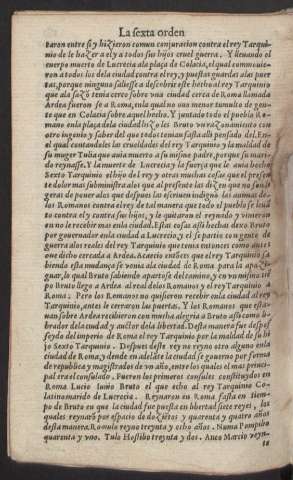 La sexta orden
taron entre si y hizieron comun conjuracion contra el rey Tarqui-
nio de le hazer a el y a todos sus hijos cruel guerra. Y lleuando el
cuerpo muerto de Lucrecia ala plaça de Colacia, el qual commouie-
ron a todos los dela ciudad contra el rey, y puestas guardas alas puer
tas, porque ninguno saliesse a descobrir este hecho al rey Tarquinio
que ala sazō tenia cerco sobre vna ciudad cerca de Roma llamada
Ardea fueron se a Roma, enla qual no vuo menor tumulto de gen-
te que en Colacia sobre aquel hecho. Y juntado todo el pueblo Ro-
mano enla plaça dela ciudad hizoles Bruto vn razonamiento con
otro ingenio y saber del que todos tenian fasta alli pensado del. En
el qual contandoles las crueldades del rey Tarquinio y la maldad de
su muger Tulia que auia muerto a su mismo padre, porque su mari-
do reynasse. Y la muerte de Lucrecia, y la fuerça que le auia hecho
Sexto Tarquinio el hijo del rey y otras muchas cosas que el presen
te dolor mas subministra alos que al presente las dizen que no son
geras de poner alos que despues las escriuen indignò los animos de-
los Romanos contra el rey de tal manera que todo el pueblo se leuā
to contra el y contra sus hijos, y le quitaron el reynado y vinieron
en no le recebir mas enla ciudad. Estas cosas assi hechas dexo Bruto
por gouernador enla ciudad a Lucrecio, y el se partio con gente de
guerra alos reales del rey Tarquinio que tenia entonces como antes
que dicho cercada a Ardea. Acaecio entōces que el rey Tarquinio sa
biendo esta mudança se venia ala ciudad de Roma para la apazi-
guar, lo qual Bruto sabiendo apartose del camino, y en vn mismo tiē
po Bruto llego a Ardea al real delos Romanos y el rey Tarquinio a
Roma: Pero los Romanos no quisieron recebir enla ciudad al rey
Tarquinio, antes le cerraron las puertas. Y los Romanos que esta-
uan sobre Ardea recibieron con mucha alegria a Bruto assi como li-
brador dela ciudad y auctor dela libertad. Desta manera fue despos
seydo del imperio de Roma el rey Tarquinio por la maldad de su hi
jo Sexto Tarquinio. Despues deste rey no reyno otro alguno enla
ciudad de Roma, y dende en adelāte la ciudad se gouerno por forma
de republica y magistrados de vn año, entre los quales el mas princi-
pal era el consulado. Fueron los primeros consules constituydos en
Roma Lucio Iunio Bruto el que echo al rey Tarquinio Co-
latino marido de Lucrecia. Reynaron en Roma fasta en tiem-
po de Bruto en que la ciudad fue puesta en libertad siete reyes, los
quales reynarō por espacio de dozietos y quarenta y quatro años
desta manera. Romulo reyno treynta y ocho años. Numa Pompilio
quarenta y vno. Tulo Hostilio treynta y dos. Anco Marcio veyn-